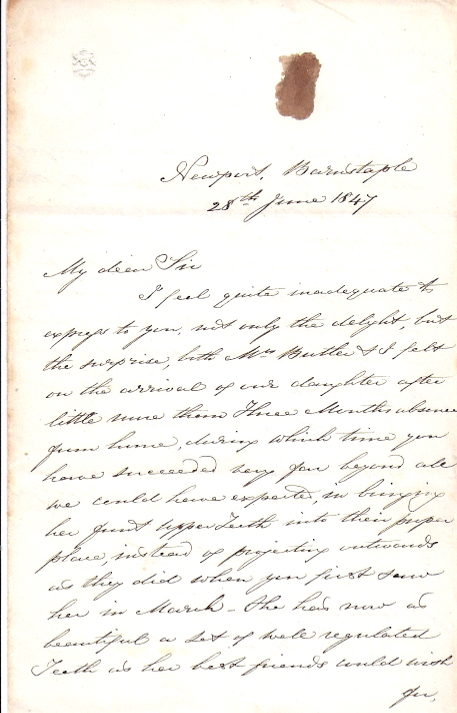 Newport, Barnstaple
28th June 1847
My dear Sir
I feel quite inadequate to
express to you, not only the delight, but
the surprise, both Mrs Butler & I felt
on the arrival of our daughter after
little more than Three Months absence
from home, during which time you
have succeeded very far beyond all
we could have expected, in bringing
her front upper Teeth into their proper
place, instead of projecting outwards
as they did when you first saw
her in March - She has now as
beautiful a set of well regulated
Teeth as her best friends could wish
for,